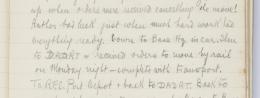 up when orders were received cancelling the move
Rather bad luck just when much hard work had
everything ready. Down to Base Hq. in car. Then
to DADRT & received orders to move by rail
on Monday night - complete with transport.
To R.E. Fort Depot & back to DADRT. Back to